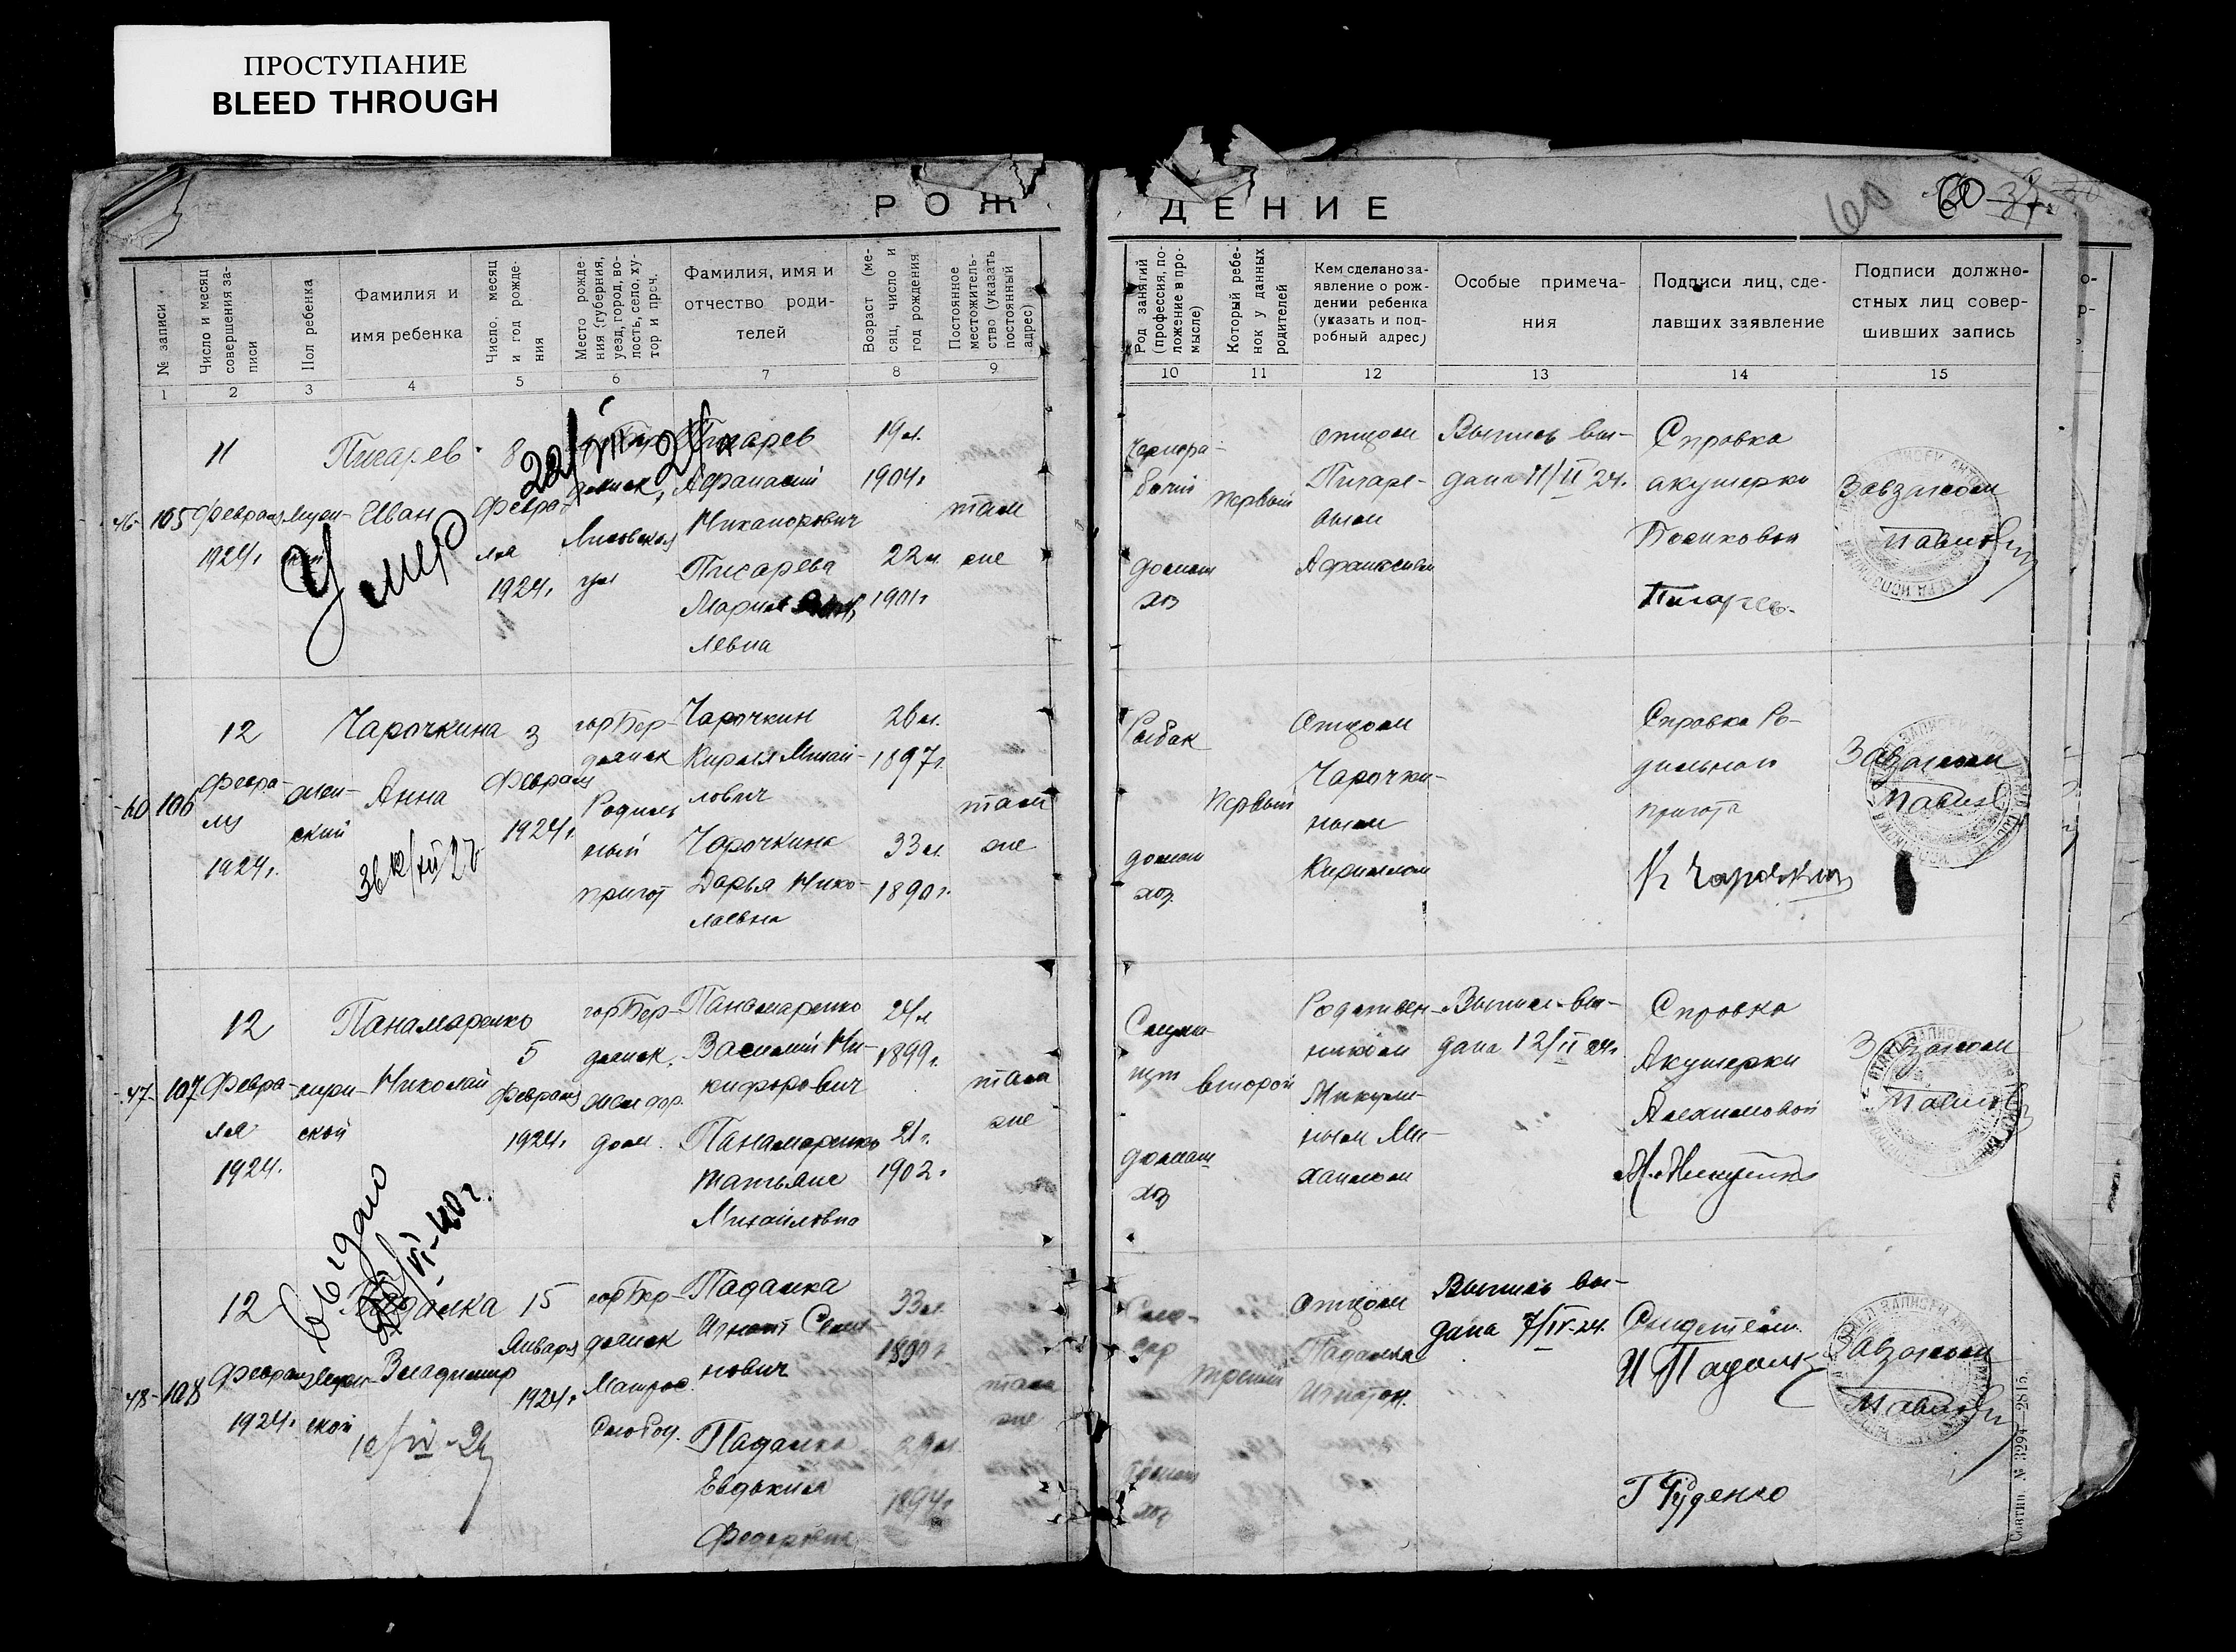 ПРОСТУПАНИЕ
BLEED THROUGH
РОЖ
ДЕНИЕ
60
60
№ записи
Число и месяц совершения за-
писи
Пол ребенка
Фамилия и
имя ребенка
Число, месяц
и год рожде-
ния
Место рожде-
ния (губерния,
уезд, город, во-
лость, село, ху-
тор и проч.
Фамилия, имя и
отчество роди-
телей
Возраст (ме-
сяц, число и
год рождения
Постоянное
местожитель-
ство (указать
постоянный
адрес)
Род занятий
(профессия, по-
ложение в про-
мысле)
Который ребе-
нок у данных
родителей
Кем сделано за-
явление о рож-
дении ребенка
(указать и под-
робный адрес)
Особые примеча-
ния
Подписи лиц, сде-
лавших заявление
Подписи должно-
стных лиц совер-
шивших запись
1 2 3 4 5 6 7 8 9
10 11 12 13 14 15
46 105
11
февраля
1924 г.
Писарев
Иван
Умер
8
Февра-
ля
1924 г.
Лисовская
ул
Писарев
Афанасий
Никанорович
Писарева
Мария
левна
19 л.
1904 г
22 л.
1901 г
там
же
Черnора-
бочий
домаш
хоз
первый
Отцом
Писаре-
вым
Выпись вы-
дана 11/II 24.
Справка
акушерки
Писарев
Завзагсом
106
12
Февра-
ля
1924 г.
жен-
ский
Чарочкина
Анна
3
Февраля
1924 г.
гор Бер-
дянск
Родиль
ный
приют
Чарочкин
Кирилл Михай-
лович
Чарочкина
Дарья Нико-
лаевна
26 л.
1897 г.
33 л.
1890 г.
там
же
Рыбак
домаш
хоз.
первый
Отцом
Чарочки-
ным
Кириллом
Справка Ро-
дильного
приюта
К Чарочкин
Завзагсом
47 107
12
Февра-
ля
1924.
муж-
ской
Панамаренко
Николай
5
Февраля
1924 г.
гор Бер-
дянск.
жел дор.
дом.
Панамаренко
Василий Ни-
кифорович
Панамаренко
Татьяна
Михайловна
24 л
1899 г.
21 г.
1902 г.
там
же
домаш
хоз
второй
Родствен-
ником
Микули-
ным Ми-
хаилом
Выпись вы-
дана 12/II 24 г
Справка
Акушерки
Завзагсом
48 108
12
Февраля
1924 г.
муж-
ской
выдано
Падалка
Владимир
10/IV-24
15
Января
1924 г
гор Бер-
дянск
Матрос.
Слобод.
Падалка
Игнат Семе-
нович
Падалка
Евдокия
Федоровна
33 л.
1894 г
там
же
Сле-
сар
домаш
хоз
третий
Отцом
Падалка
Игнатом.
Выпись вы-
дана 7/IV-24.
И Падалка
Г Руденко
Завзагсом
№ 3294—2815.